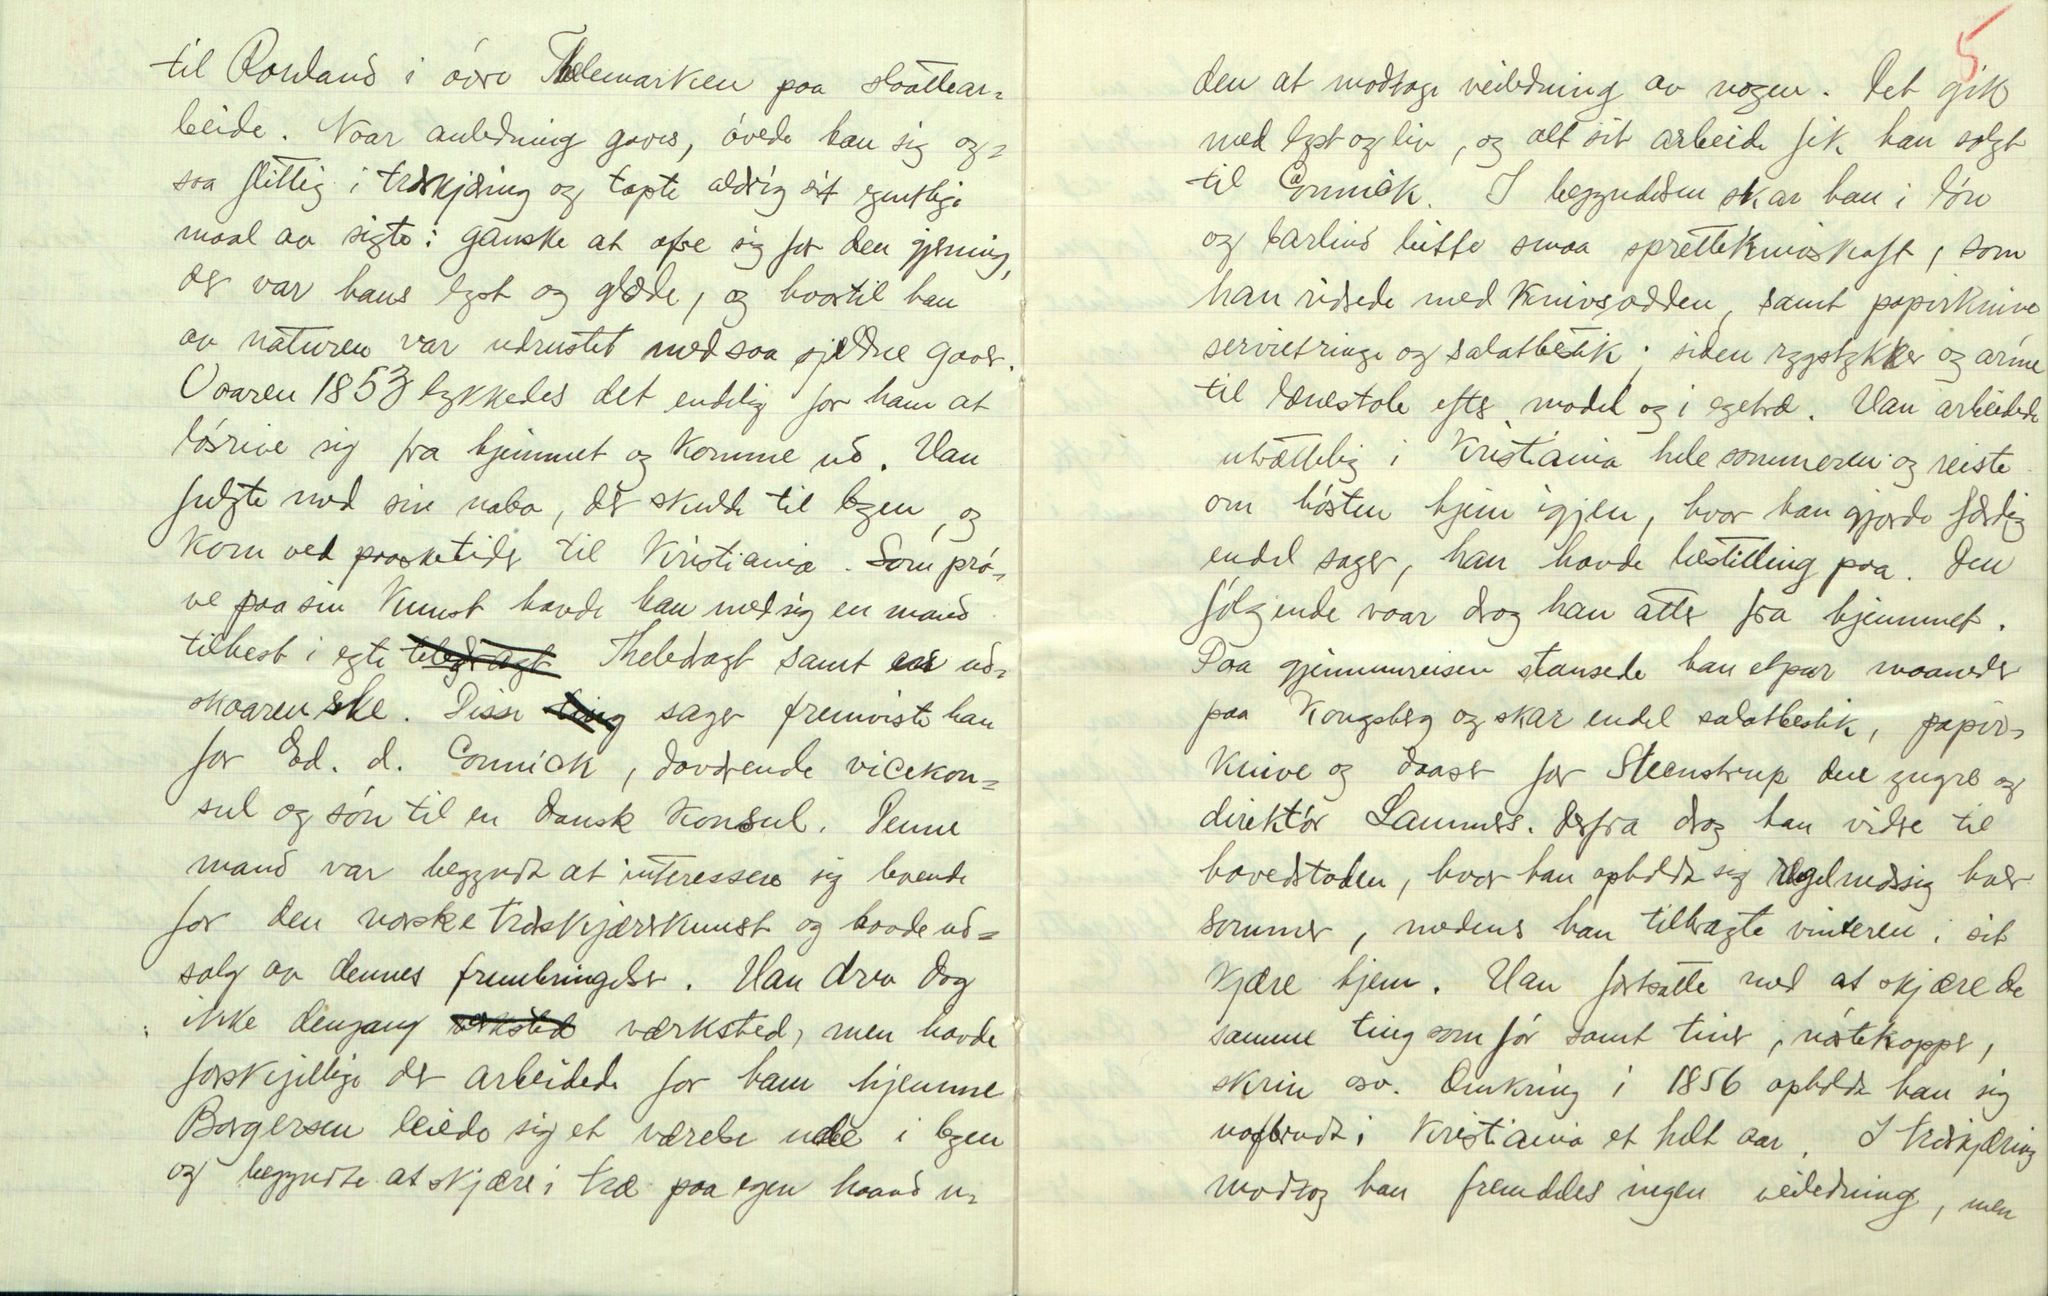 til Rauland i övre Thelemarken paa slaattear=
beide. Naar anledning gaves, övede han sig og=
saa flittig i træskjæring og tapte aldrig sit egentlige
maal av sigte: ganske at ofre sig for den gjerning,
der var hans lyst og glæde, og hvortil han
av naturen var udrustet med saa sjeldne gaver.
Vaaren 1853 lykkedes det endelig for ham at
lösrive sig fra hjemmet og komme ud. Han
fulgte med sin nabo, der skulde til byen, og
kom ved paasketider til Kristiania. Som prö-
ve paa sin Kunst havde han med sig en mand
tilhest i egte teledragt Theledragt samt en ud-
skaaren ske. Disse ting sager fremviste han
for Ed. d. Connick, daværende vicekon=
sul og sön til en dansk konsul. Denne
mand var begyndt at interessere sig levende
for den norske træskjærerkunst og havde ud=
salg av dennes frembringelser. Han drev dog
ikke dengang verksted værksted, men havde
forskjellige der arbeidede for ham hjemme
Borgersen leiede sig et værelse ude i byen
og begyndte at skjære i træ paa egen haand u-
5
den at modtage veiledning av nogen. Det gik
med lyst og liv, og alt sit arbeide fik han solgt
til Connick. I begyndelsen skar han i lön
og barlind bitte smaa sprettekniveskaft, som
han ridsede med knivsodden, samt papirknive
servietringe og salatbestik; siden rygstykker og arme
til lænestole efter model og i egetræ. Han arbeidede
utrættelig i Kristiania hele sommeren og reiste
om hösten hjem igjen, hvor han gjorde færdig
endel sager, han havde bestilling paa. Den
fölgende vaar drog han atter fra hjemmet.
Paa gjennemreisen stansede han etpar maaneder
paa Kongsberg og skar endel salatbestik, papir-
knive og daaser for Steenstrup den yngre og
direktör Lammers. Derfra drog han videre til
hovedstaden, hvor han opholdt sig regelmæssig hver
sommer, medens han tilbragte vinteren i sit
kjære hjem. Han fortsatte med at skjære de
samme ting som för samt tiner, nöstekopper,
skrin osv. Omkring i 1856 opholdt han sig
uafbrudt i Kristiania et helt aar. I træskjæring
modtog han fremdeles ingen veiledning, men